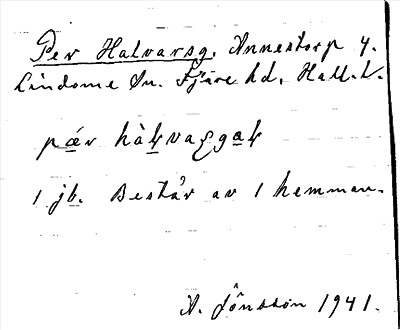 Per Halvarsg, Annestorp 4.
Lindome sn. Fjäre hd, Hall. l.
pær hàḷvaṣgaḷ
1 jb. Består av 1 hemman.
A. Jönsson 1941.